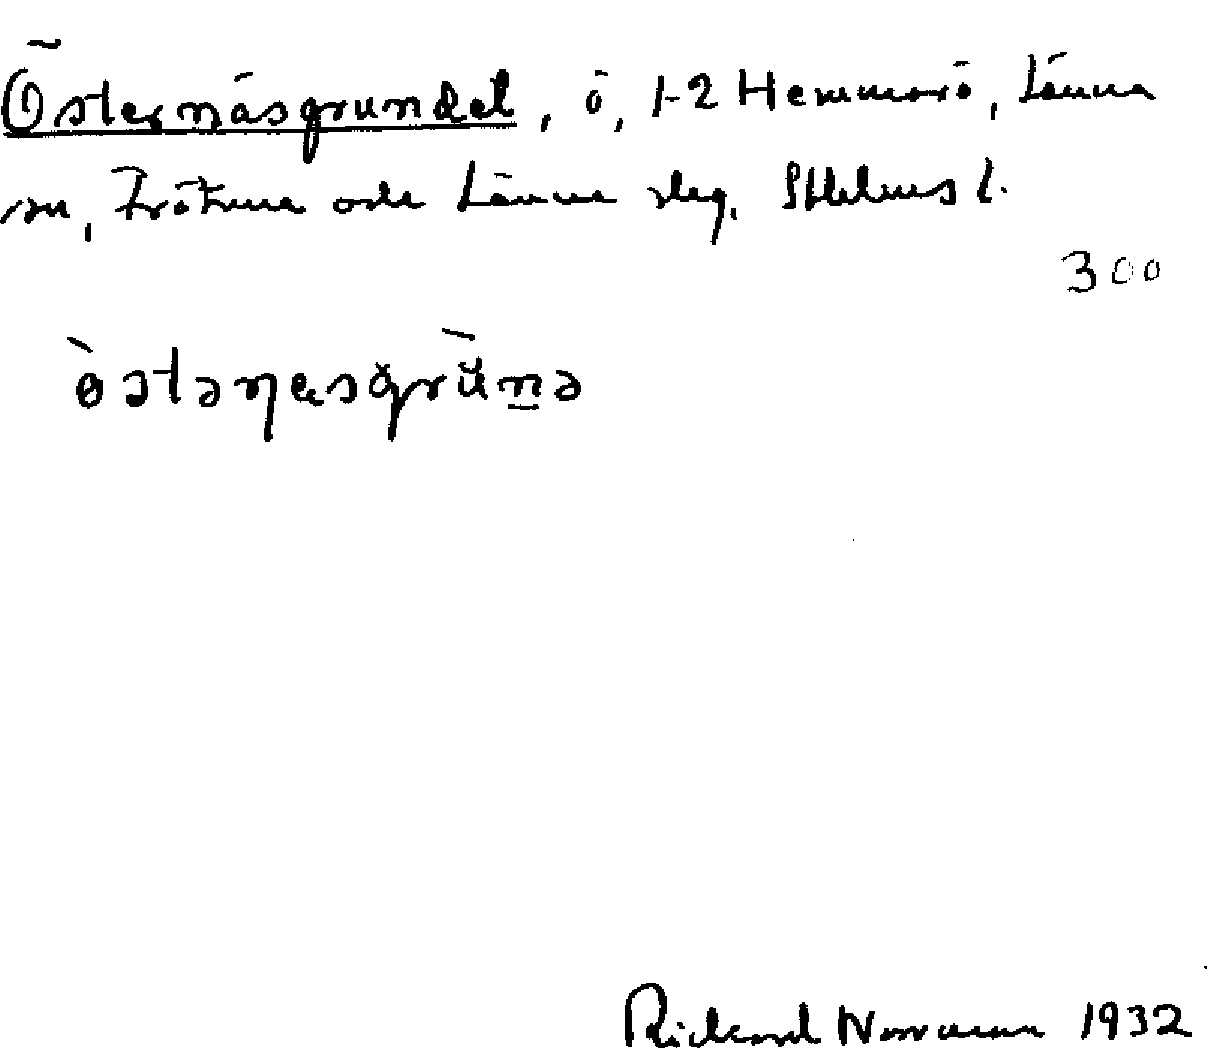 Östernäsgrundet, ö, 1-2 Hemmarö, Länna
sn, Frötuna och Länna slg, Sthlms l.
300
östəṇesgrùn̲ə
Rickard Norrman 1932